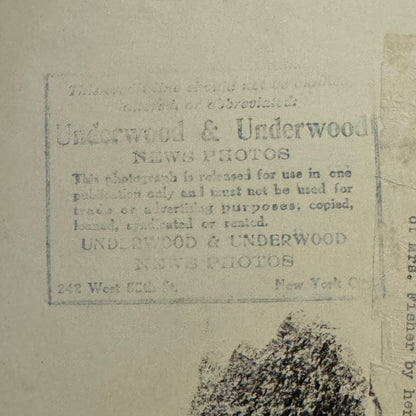 This credit line should not be
altered, or abbreviated:
Underwood & Underwood
NEWS PHOTOS
This photograph is released for use in one
publication only and must not be used for
trade or advertising purposes; copied,
loaned, syndicated or rented.
UNDERWOOD & UNDERWOOD
NEWS PHOTOS
242 West 55th St. New York
of Mrs. Fisher by her